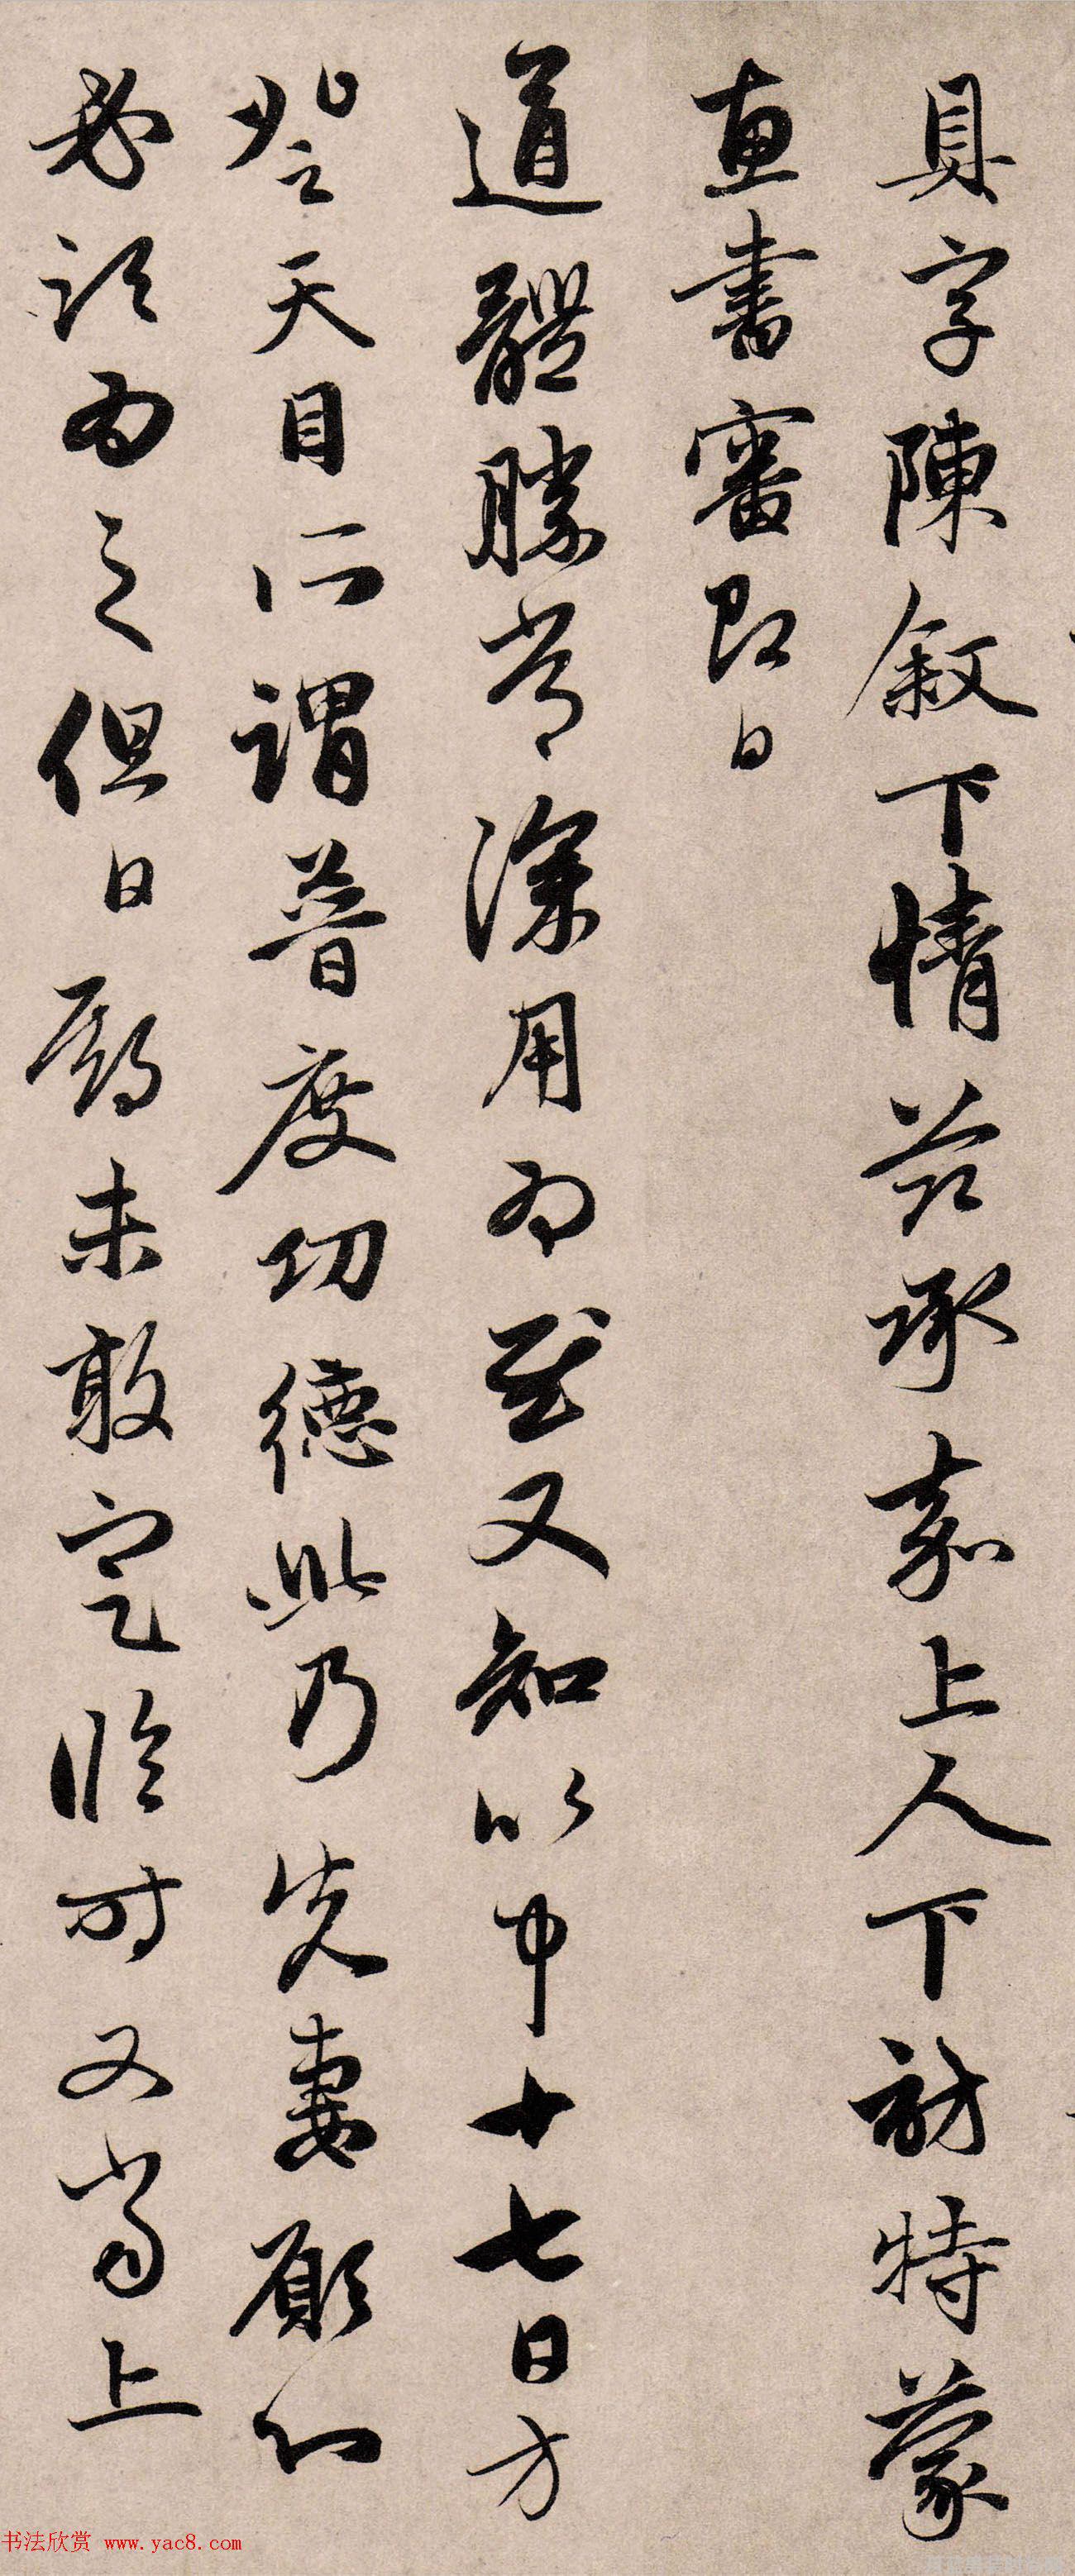 具字陳敘下情茲承嘉上人下訪特蒙
惠書審即日
道體勝常深用為慰又知以中十七日方
登天目所謂普度功德此乃先妻願心
必須為之但日辰未敢定臨時又當上
书法欣赏 www.yac8.com